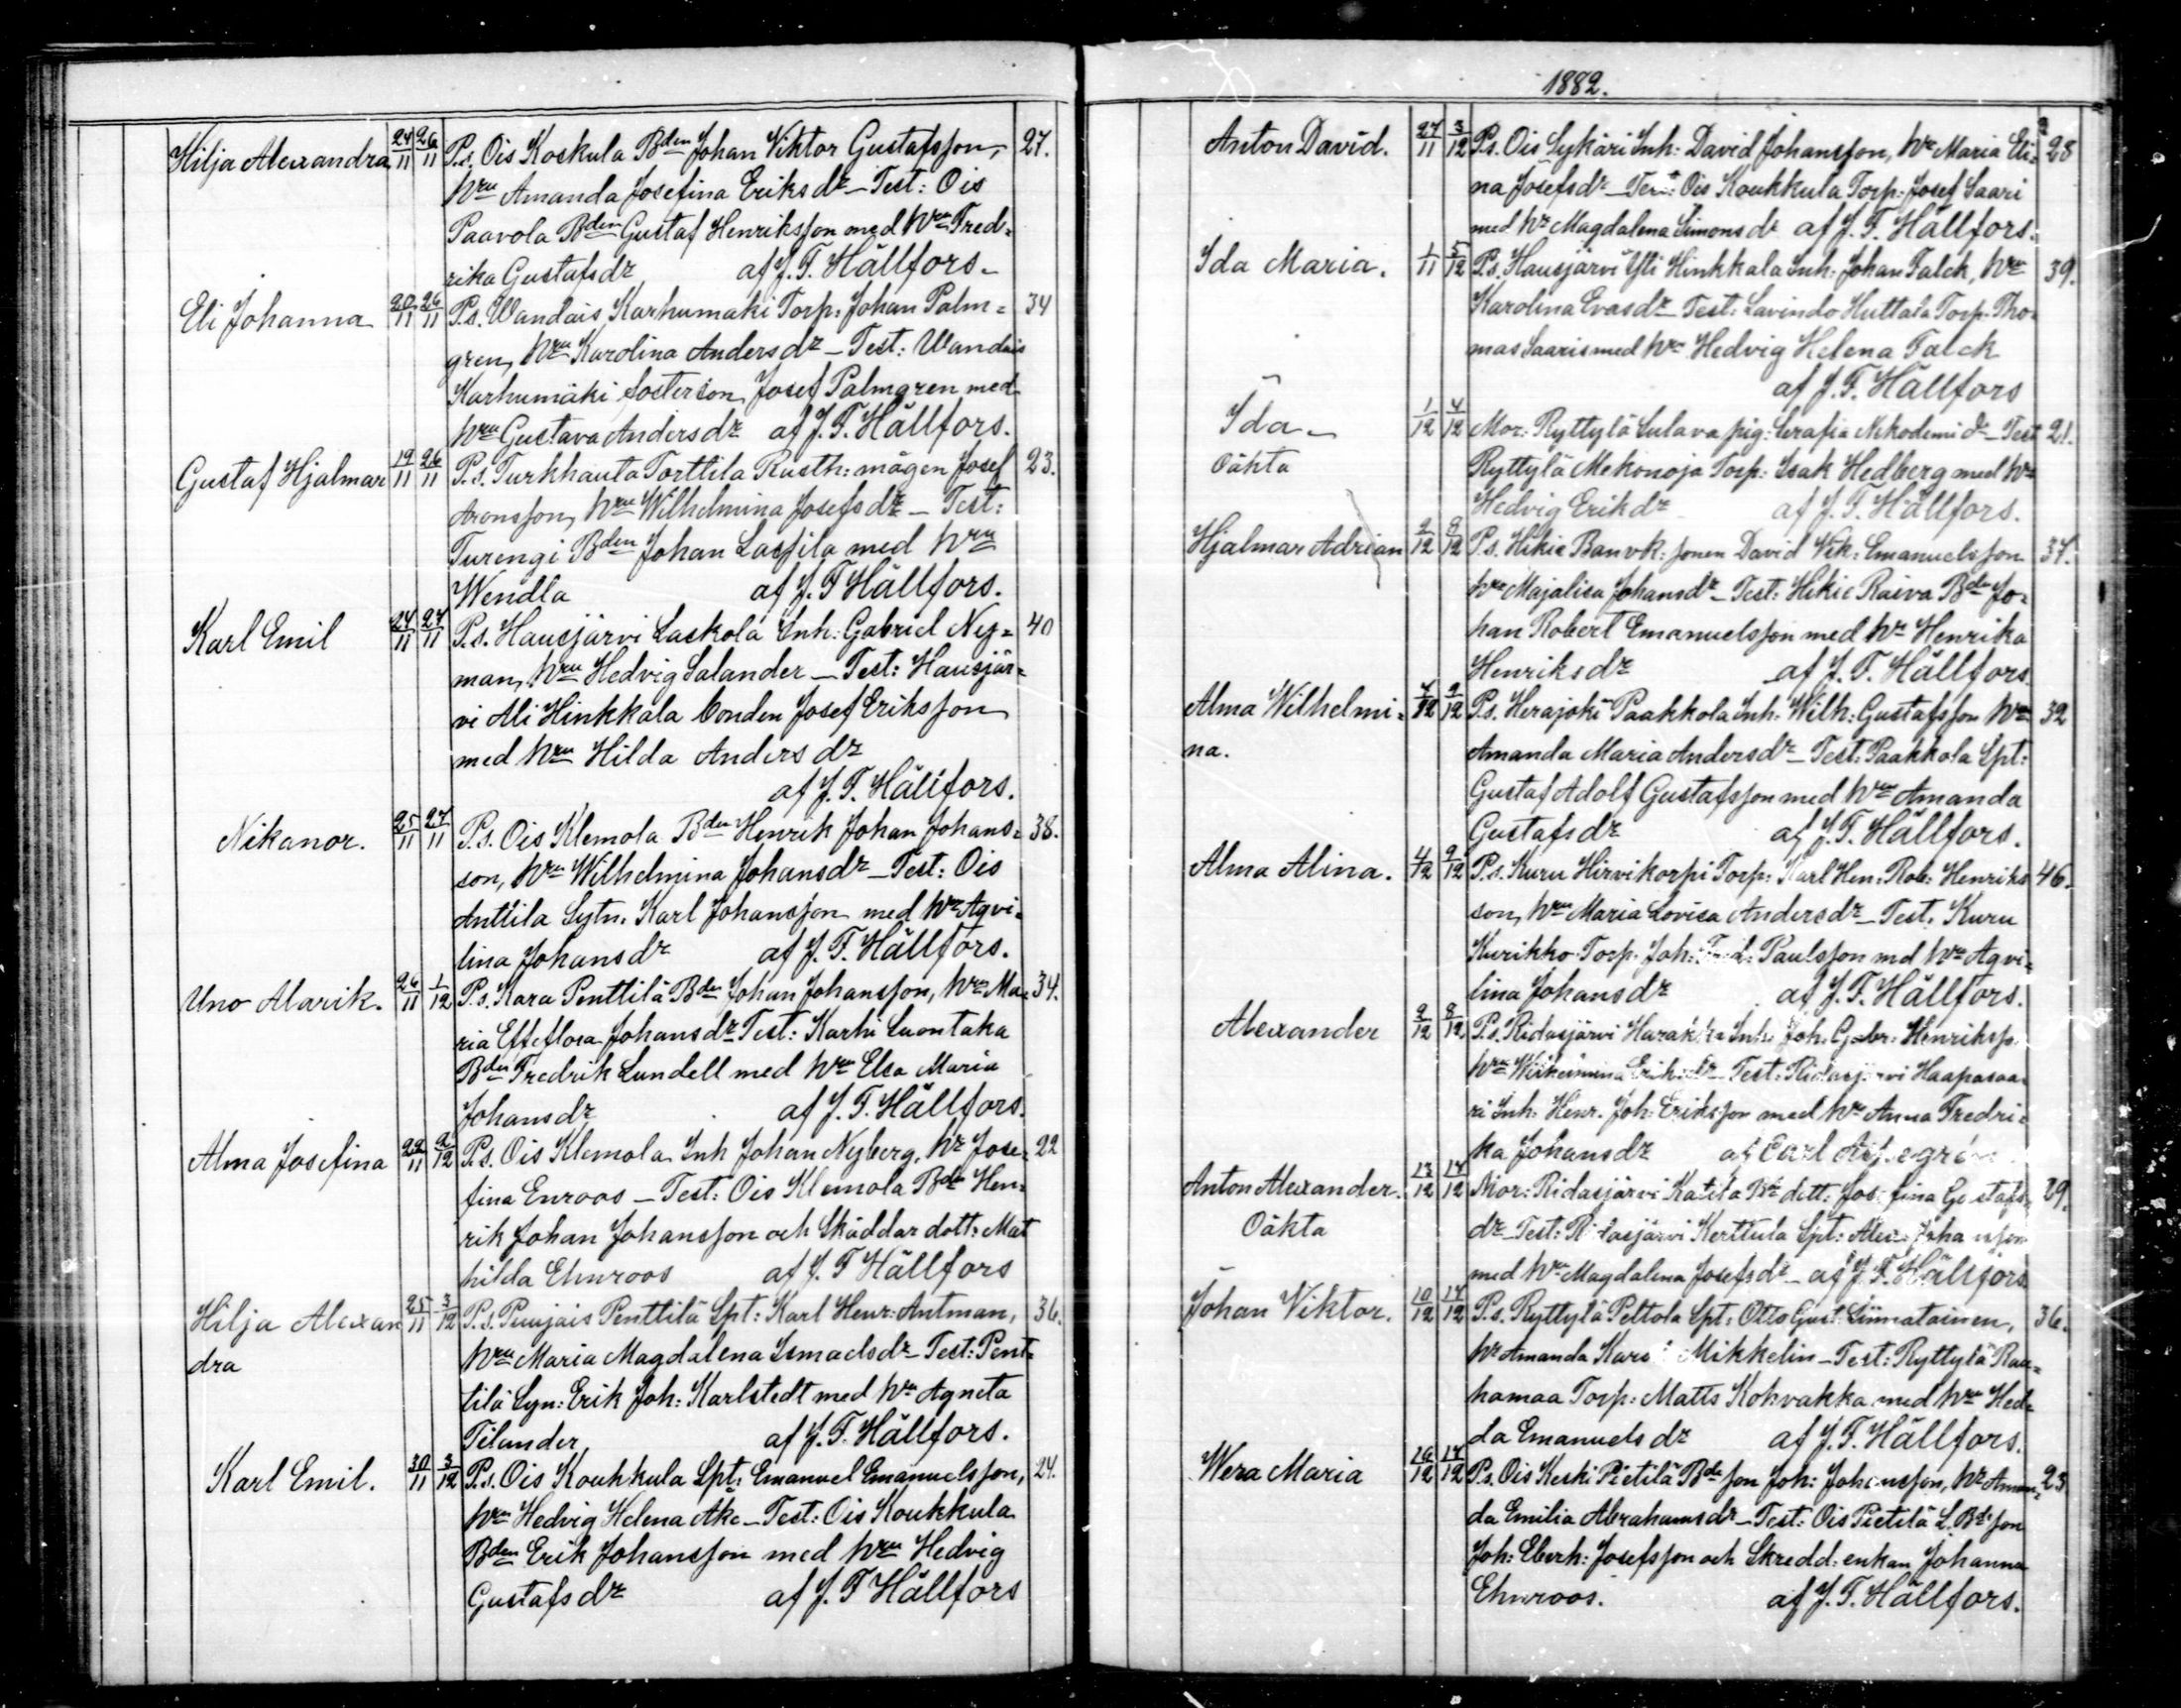 Hilja Alexandra 24/11 26/11 P.s. Ois Koskula Bden Johan Viktor Gustafsson, 27.
hru Amanda Josefina Eriksdr – Test: Ois
Paavola Bden Gustaf Henriksson med hru Fred-
rika Gustafsdr af J. F. Hällfors.
Eli Johanna 20/11 26/11 P.s. Wandais Karhumäki Torp: Johan Palm- 34
gren, hru Karolina Andersdr – Test: Wandais
Karhumäki Sosterson Josef Palmgren med
hru Gustava Andersdr af J. F. Hällfors.
Gustaf Hjalmar 19/11 26/11 P.s. Turkhauta Torttila Rusth: mågen Josef 23.
Aronsson, hru Wilhelmina Josefsdr – Test:
Turengi Bden Johan Lassila med hru
Wendla af J. F. Hällfors.
Karl Emil 24/11 27/11 P.s. Hausjärvi Laskola Inh: Gabriel Ny- 40
man, hru Hedvig Salander – Test: Hausjär-
vi Ali Hinkkala bonden Josef Eriksson
med hru Hilda Andersdr
af J. F. Hällfors.
Nikanor. 25/11 27/11 P.s. Ois Klemola Bden Henrik Johan Johans- 38.
son, hru Wilhelmina Johansdr – Test: Ois
Anttila Sytn. Karl Johansson med hru Aqvi-
lina Johansdr af J. F. Hällfors.
Uno Alarik. 26/11 1/12 P.s. Kara Penttilä Bden Johan Johansson, hru Ma- 34.
ria Johansdr Test: Karhi Luontaka
Bden Fredrik Lundell med hru Elsa Maria
Johansdr af J. F. Hällfors.
Alma Josefina 22/11 2/12 P.s. Ois Klemola Inh Johan Nyberg, hr Jose- 22
fina Enroos – Test: Ois Klemola Bden Hen-
rik Johan Johansson och Skäddar dott: Mat
hilda Ehnroos af J. F Hällfors
Hilja Alexan 25/11 3/12 P.s. Puujais Penttilä Spt: Karl Henr: Antman, 36.
dra hru Maria Magdalena Ismaelsdr – Test: Pent-
tilä Syn: Erik Joh: Karlstedt med hru Agneta
Tilander af J. F. Hällfors.
Karl Emil. 30/11 3/12 P.s. Ois Koukkula Spt: Emanuel Emanuelsson, 24.
hru Hedvig Helena Ake – Test: Ois Koukkula
Bden Erik Johansson med hru Hedvig
Gustafsdr af J. F Hällfors
1882.
Anton David. 27/11 3/12 P.s. Ois Sykäri Inh: David Johansson, hr Maria Eli- 28
na Josefsdr – Test: Ois Koukkula Torp: Josef Saari
med hr Magdalena Simonsdr af J. F. Hällfors.
Ida Maria. 1/11 5/12 P.s. Hausjärvi Yli Hinkkala Inh: Johan Falck, hru 39.
Karolina Evasdr Test: Lavindo Huttala Torp. Tho-
mas Saaris med hru Hedvig Helena Falck
af J. F. Hällfors
Ida – 1/12 4/12 Mor: Ryttylä Sulava pig: Serafia Nikodemi dr – Test 21.
Oäkta Ryttylä Mekonoja Torp: Isak Hedberg med hr
Hedvig Erikdr af J. F. Hällfors.
Hjalmar Adrian 2/12 8/12 P.s. Hikie Banvk: sonen David Vik: Emanuelsson 37.
hru Majalisa Johansdr – Test: Hikie Raiva Bden Jo-
han Robert Emanuelsson med hr Henrika
Henriksdr af J. F. Hällfors
Alma Wilhelmi- 7/12 9/12 P.s. Herajoki Paakkola Inh: Wilh: Gustafsson hru 32
na. Amanda Maria Andersdr – Test: Paakkola Spt:
Gustaf Adolf Gustafsson med hru Amanda
Gustafsdr af J. F. Hällfors.
Alma Alina. 4/12 9/12 P.s. Kuru Hirvikorpi Torp: Karl Hen: Rob: Henriks 46.
son, hru Maria Lovisa Andersdr – Test: Kuru
Kurikko Torp: Joh: Paulsson md hru Aqvi-
lina Johansdr af J. F. Hällfors.
Alexander 2/12 8/12 P.s. Ridasjärvi Inh: Joh: Gabr: Henriksso.
hru Test: Ridasjärvi Haapasaa-
ri Inh: Henr. Joh: Eriksson med hr Anna Fredri-
ka Johansdr af Carl
Anton Alexander. 13/12 17/12 Mor: Ridasjärvi Katila Bde dott: Josefina Gustafs- 29.
Oäkta dr – Test: Ridasjärvi Kerttula Spt: Alex: Johansson
med hru Magdalena Josefsdr – af J. F. Hällfors
Johan Viktor. 10/12 17/12 P.s. Ryttylä Peltola Spt: Otto Gust: Linnatainen, 36.
hr Amanda Karo: Mikkelin – Test: Ryttylä Rau-
hamaa Torp: Matts Kohvakka med hru Hed-
da Emanuelsdr af J. F. Hällfors.
Wera Maria 16/12 17/12 P.s. Ois Keski Pietilä Bde son Joh: Johansson, hr Aman- 23
da Emilia Abrahamsdr – Test: Ois Pietilä L. Bde son
Joh: Eberh: Josefsson och Skredd: enkan Johanna
Ehnroos. af J. F. Hällfors.